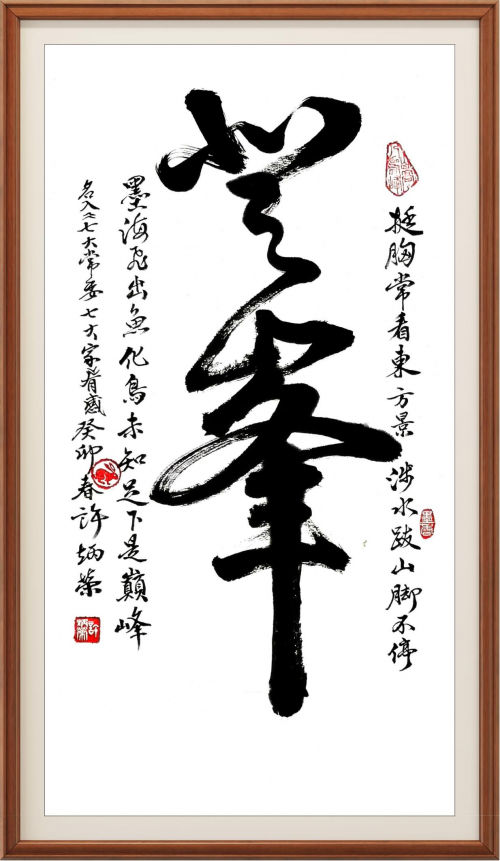 挺胸常看東方景 涉水跋山脚不停
登峯
墨海飛出魚化鳥未知足下是巔峰
名入七大常委七大家有感癸卯春許炳榮